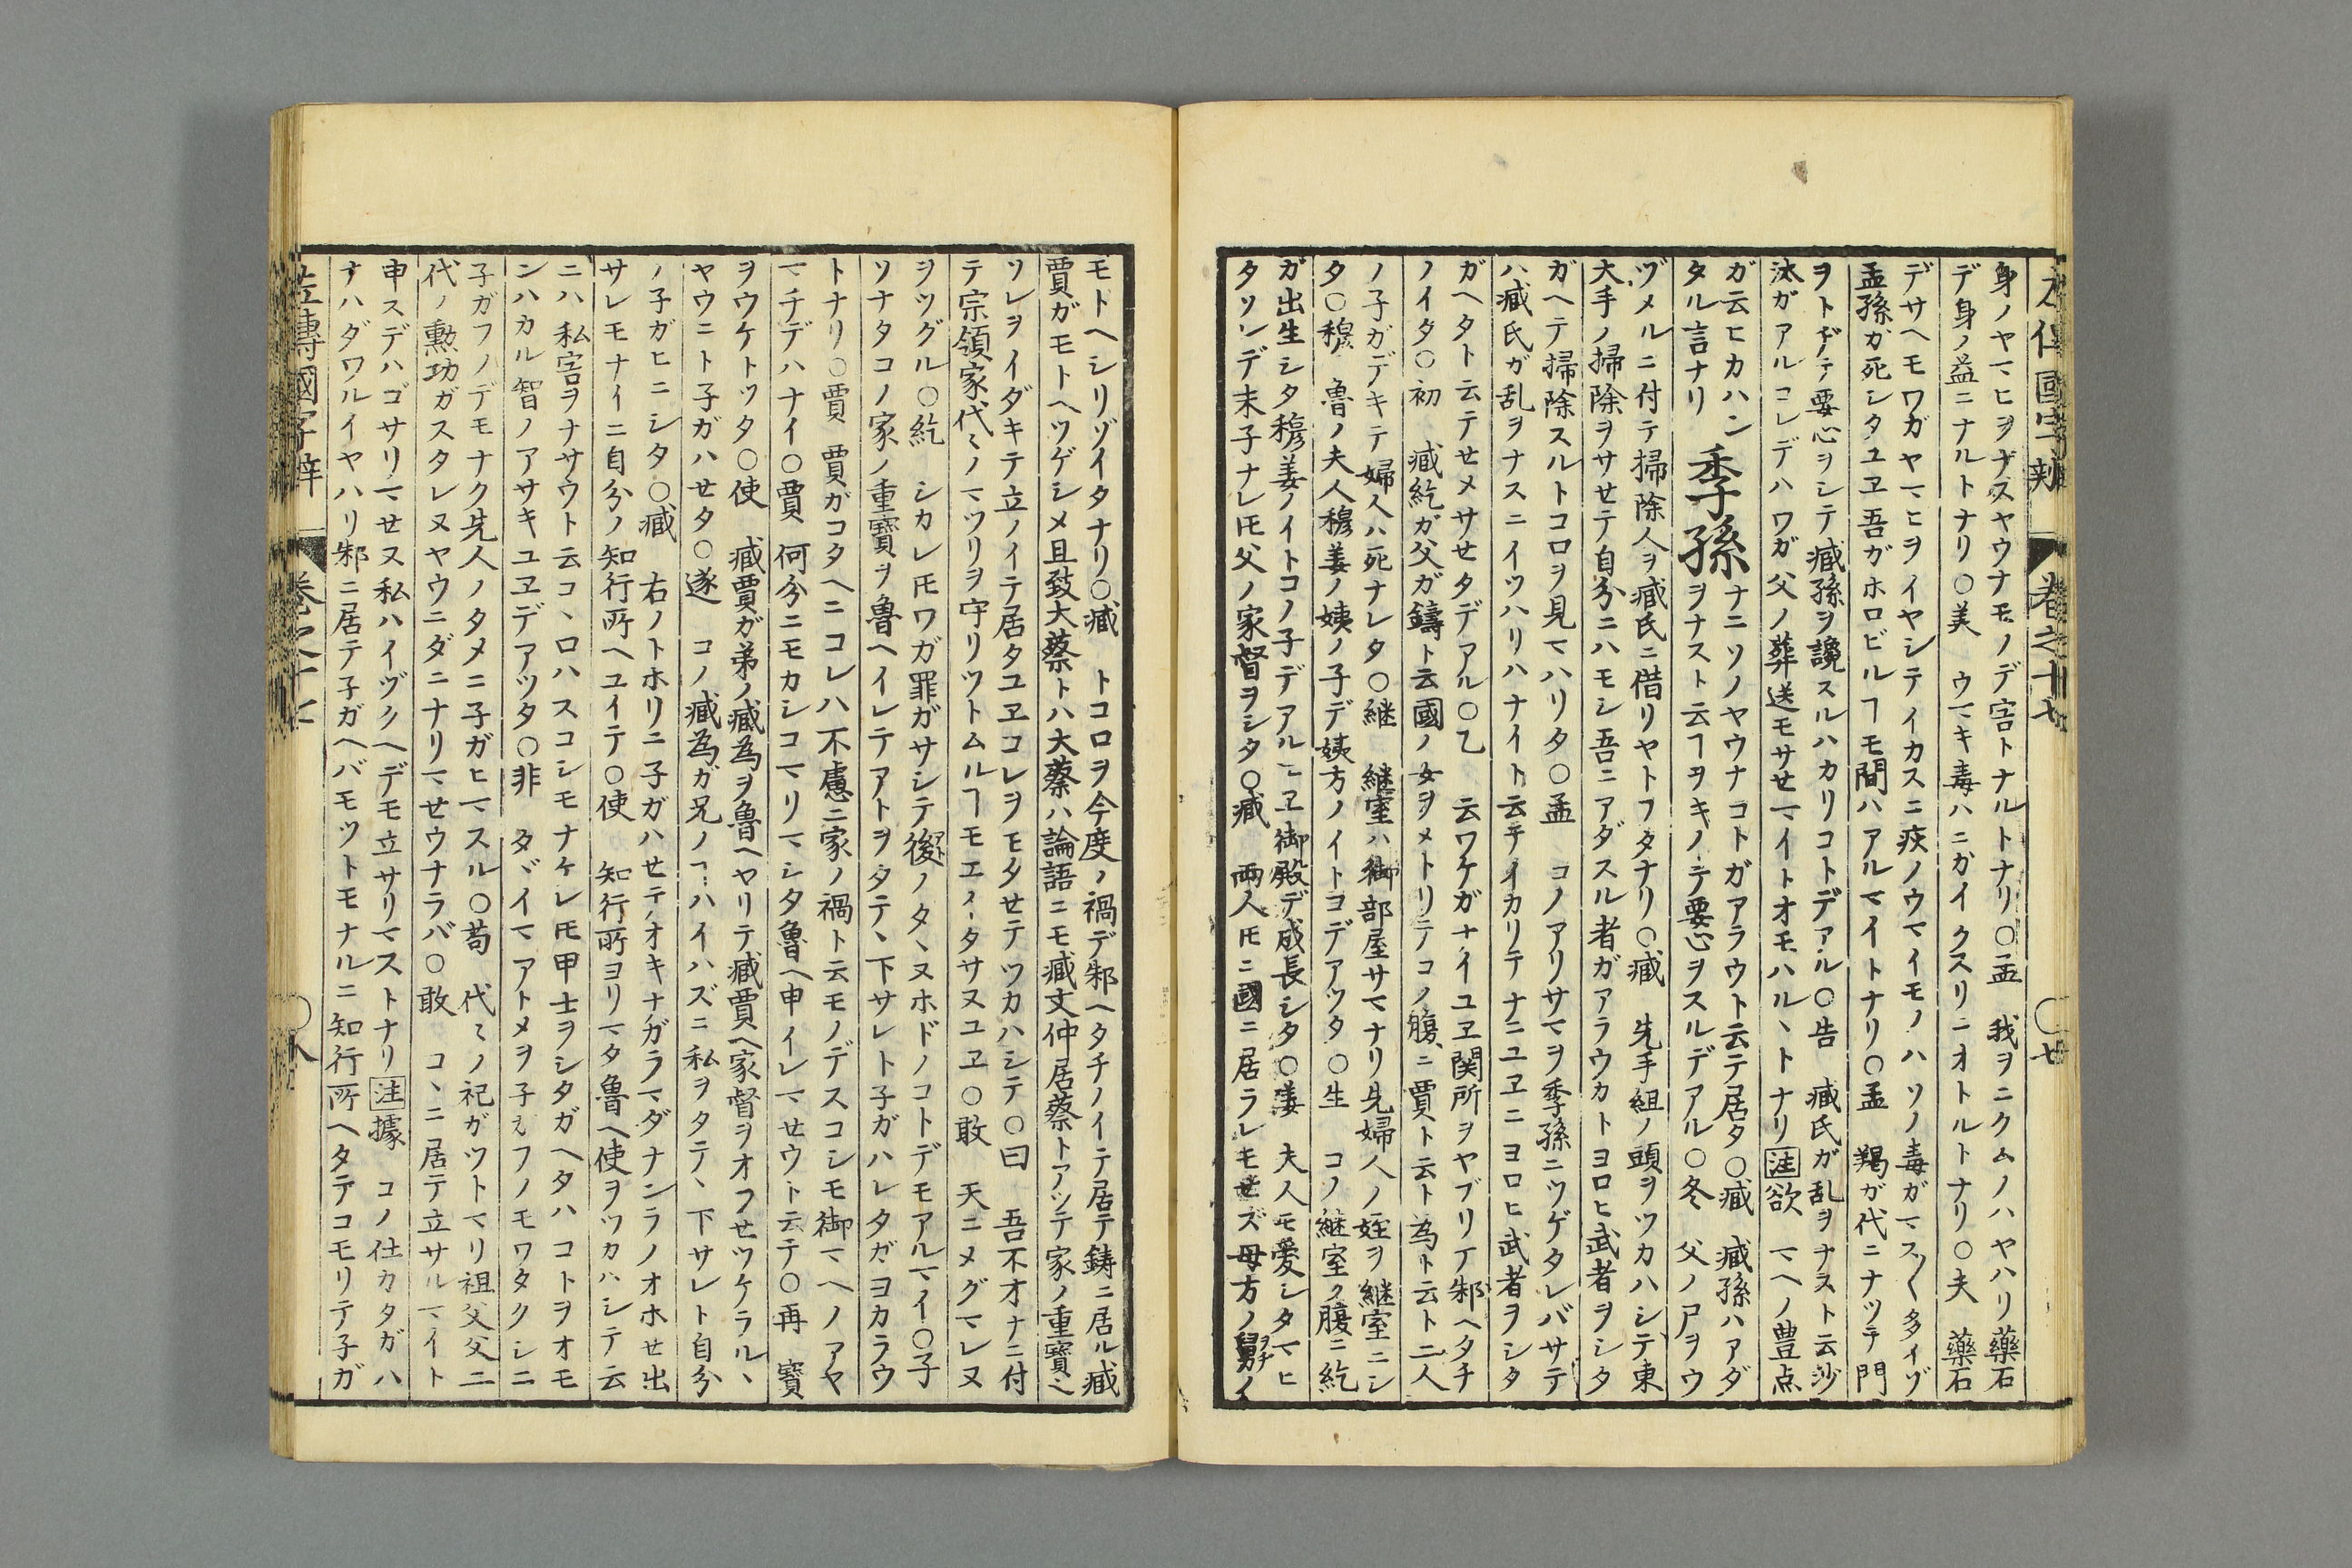 身ノヤマヒヲナスヤウナモノデ害トナルトナリ○孟　我ヲニクムノハヤハリ藥石
デ身ノ益ニナルトナリ○美　ウマキ毒ハニガイクスリニオトルトナリ○夫　藥石
デサヘモワガヤマヒヲイヤシテイカスニ疾ノウマイモノハソノ毒ガマス〱多イゾ
孟孫ガ死シタユヱ吾ガホロビルヿモ間ハアルマイトナリ○孟　羯ガ代ニナツテ門
ヲトヂテ要心ヲシテ臧孫ヲ讒スルハカリコトデアル○告　臧氏ガ乱ヲナスト云沙
汰ガアルコレデハワガ父ノ葬送モサセマイトオモハルヽトナリ注欲　マヘノ豊点
ガ云ヒカハン　季孫　ナニソノヤウナコトガアラウト云テ居タ○臧　臧孫ハアダ
タル言ナリ　ヲナスト云ヿヲキノテ要心ヲスルデアル○冬　父ノ尸ヲウ
ヅメルニ付テ掃除人ヲ臧氏ニ借リヤトフタナリ○臧　先手組ノ頭ヲツカハシテ東
大手ノ掃除ヲサセテ自分ニハモシ吾ニアダスル者ガアラウカトヨロヒ武者ヲシタ
ガヘテ掃除スルトコロヲ見マハリタ○孟　コノアリサマヲ季孫ニツゲタレバサデ
ハ臧氏ガ乱ヲナスニイツハリハナイト云テイカリテナニユヱニヨロヒ武者ヲシタ
ガヘタト云テセメサセタデアル○乙　云ワケガナイユヱ関所ヲヤブリテ邾ヘタチ
ノイタ○初　臧紇ガ父ガ鑄ト云國ノ女ヲメトリテコノ腹ニ賈ト云ト為ト云ト二人
ノ子ガデキテ婦人ハ死ナレタ○継　継室ハ御部屋サマナリ先婦人ノ姪ヲ継室ニシ
タ○穆　魯ノ夫人穆姜ノ姨ノ子デ姨方ノイトヨデアツタ○生　コノ継室ノ腹ニ紇
ガ出生シタ穆姜ノイトコノ子デアルユヱ御殿デ成長シタ○姜　夫人モ愛シタマヒ
タソンデ末子ナレ𪜈父ノ家督ヲシタ○臧　両人𪜈ニ國ニ居ラレモセズ母方ノ舅ノ
モトヘシリゾイタナリ○臧　トコロヲ今度ノ禍デ邾ヘタチノイテ居テ鋳ニ居ル臧
賈ガモトヘツゲシメ且致大蔡トハ大蔡ハ論語ニモ臧文仲居蔡トアツテ家ノ重寶也
ソレヲイダキテ立ノイテ居タユヱコレヲモタセテツカハシテ○曰　吾不オナニ付
テ宗領家代〻ノマツリヲ守リツトムルヿモエイタサヌユヱ○敢　天ニメグマレヌ
ヲツグル○紇　シカレ𪜈ワガ罪ガサシテ後ノタヽヌホドノコトデモアルマイ○子
ソナタコノ家ノ重寶ヲ魯ヘイレテアトヲタテヽ下サレト子ガハレタガヨカラウ
トナリ○賈　賈ガコタヘニコレハ不慮ニ家ノ禍ト云モノデスコシモ御マヘノアヤ
マチデハナイ○賈　何分ニモカシコマリマシタ魯ヘ申イレマセウト云テ○再　寶
ヲウケトツタ○使　臧賈ガ弟ノ臧為ヲ魯ヘヤリテ臧賈ヘ家督ヲオフセツケラルヽ
ヤウニト子ガハセタ○遂　コノ臧為ガ兄ノヿハイハズニ私ヲタテヽ下サレト自分
ノ子ガヒニシタ○臧　右ノトホリニ子ガハセテオキナガラマダナンラノオホセ出
サレモナイニ自分ノ知行所ヘユイテ○使　知行所ヨリマタ魯ヘ使ヲツカハシテ云
ニハ私害ヲナサウト云コヽロハスコシモナケレ𪜈甲士ヲシタガヘタハコトヲオモ
ンハカル智ノアサキユヱデアツタ○非　タヾイマアトメヲ子カフノモワタクシニ
子ガフノデモナク先人ノタメニ子ガヒマスル○苟　代〻ノ祀ガツトマリ祖父父二
代ノ勲功ガスタレヌヤウニダニナリマセウナラバ○敢　コヽニ居テ立サルマイト
申スデハゴサリマセヌ私ハイヅクヘデモ立サリマストナリ注據　コノ仕カタガハ
ナハダワルイヤハリ邾ニ居テ子ガヘバモツトモナルニ知行所ヘタテコモリテ子ガ
左傳國字辨　巻之十七　○八